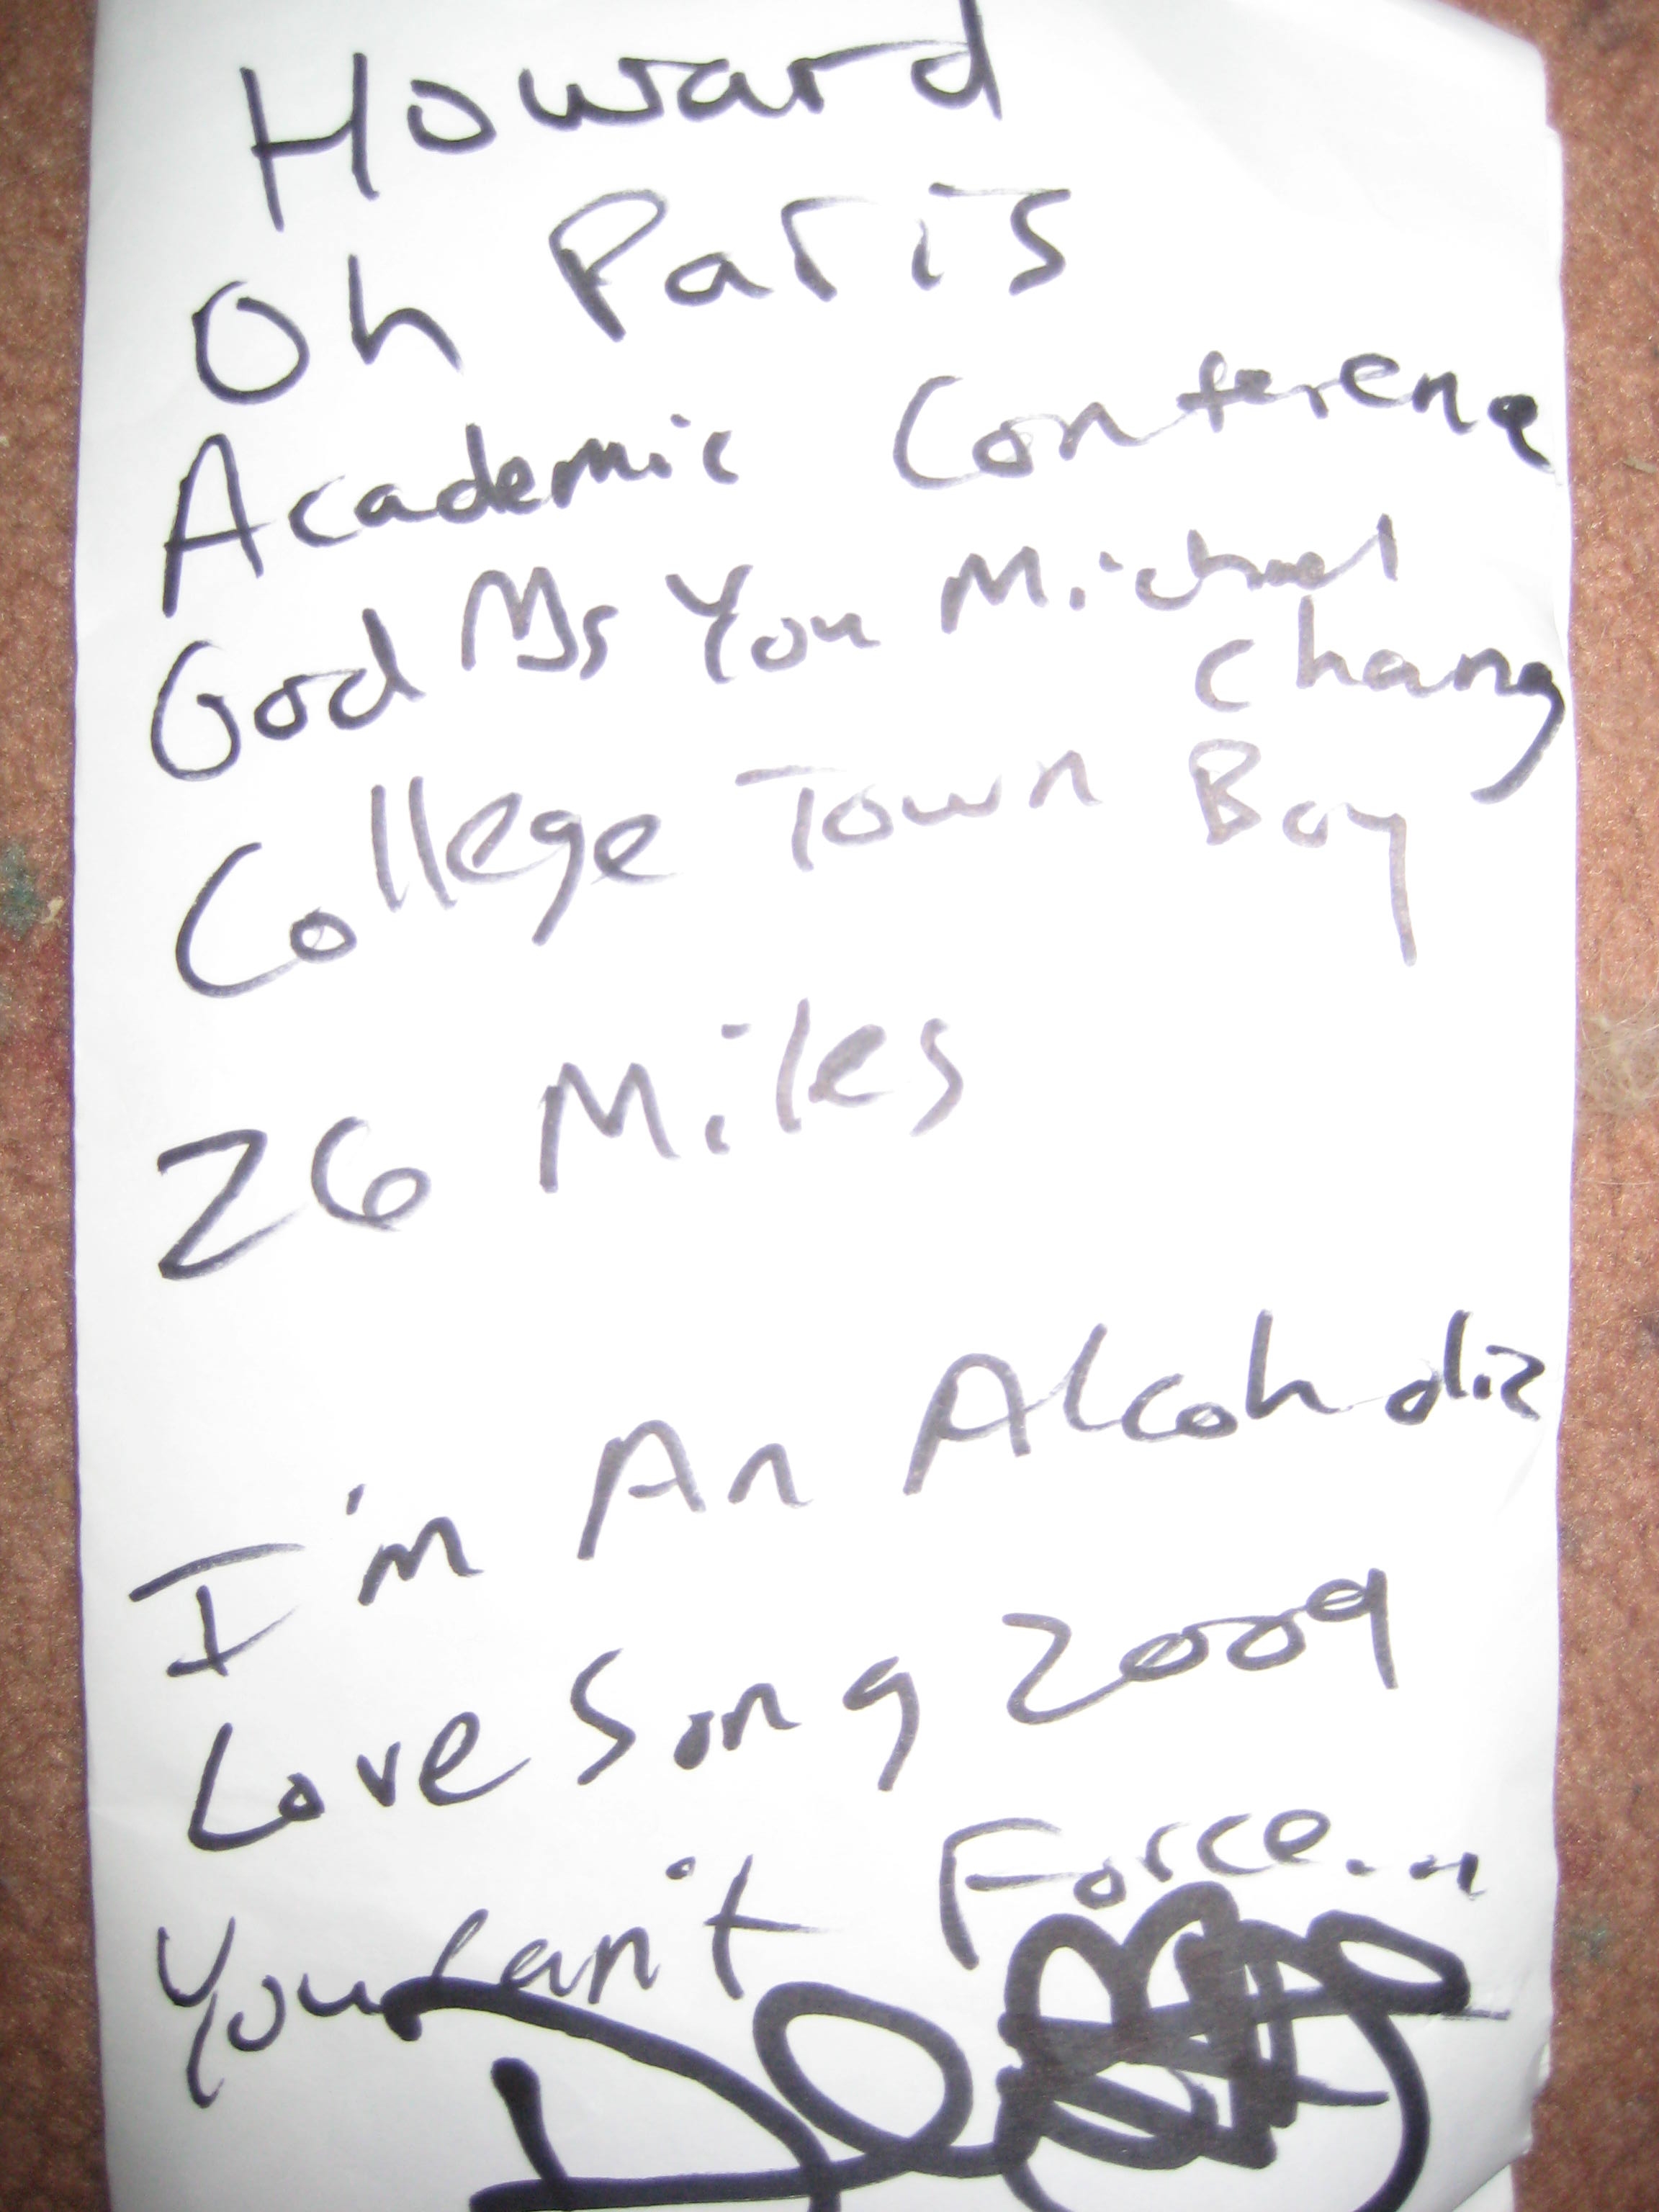 Howard
Oh Paris
Academic Conference
God You Michael
Chang
College Town Boy
26 Miles
I'm An Alcoholic
Love Song 2009
You can't Force...